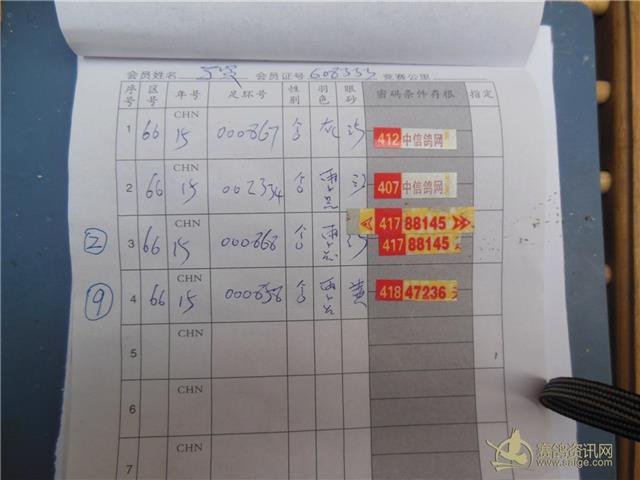 会员姓名 会员证号 608333 竞赛公里
序号 区号 年号 足环号 性别 羽色 眼砂 密码条件存根 指定
1 66 CHN 15 000867 灰 沙 412 中信鸽网
2 66 CHN 15 002334 雨点 407 中信鸽网
417 88145
② 3 66 CHN 15 000868 雨点 沙 417 88145
⑨ 4 66 CHN 15 000858 雨点 黄 418 47236
5 CHN
6 CHN
7 CHN
赛鸽资讯网
www.saige.com